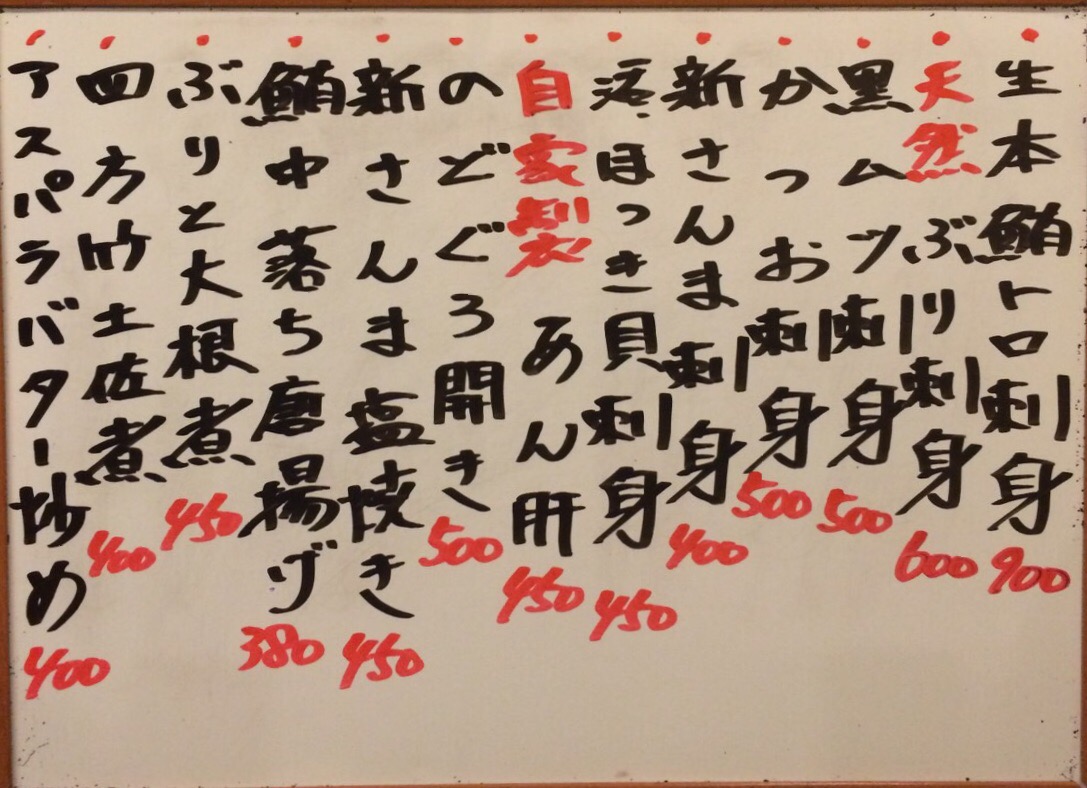 生本鮪トロ刺身 900
天然ぶり刺身 600
黒ムツ刺身 500
かつお刺身 500
新さんま刺身 400
活ほっき貝刺身 450
自家製あん肝 450
のどぐろ開き 500
新さんま塩焼き 450
鮪中落ち唐揚げ 380
ぶりと大根煮 450
四方竹土佐煮 400
アスパラバター炒め 400